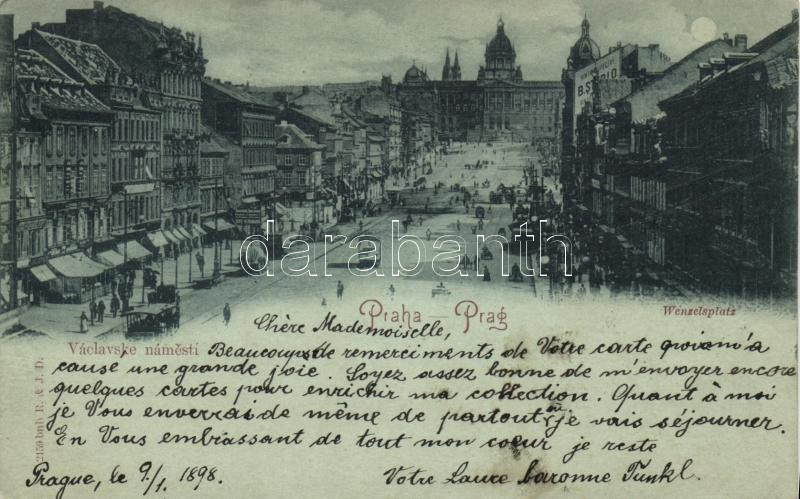 B.S
darabanth
Praha - Prag
Václavské náměstí
Wenzelsplatz
Chère Mademoiselle,
Beaucoup de remerciments de Votre carte qui m'a
causé une grande joie. Soyez assez bonne de m'envoyer encore
quelques cartes pour enrichir ma collection. Quant à moi
je Vous enverrai de même de partout où je vais séjourner.
En Vous embrassant de tout mon cœur je reste
Prague, le 9/1. 1898.
Votre Laure baronne Tunkl.